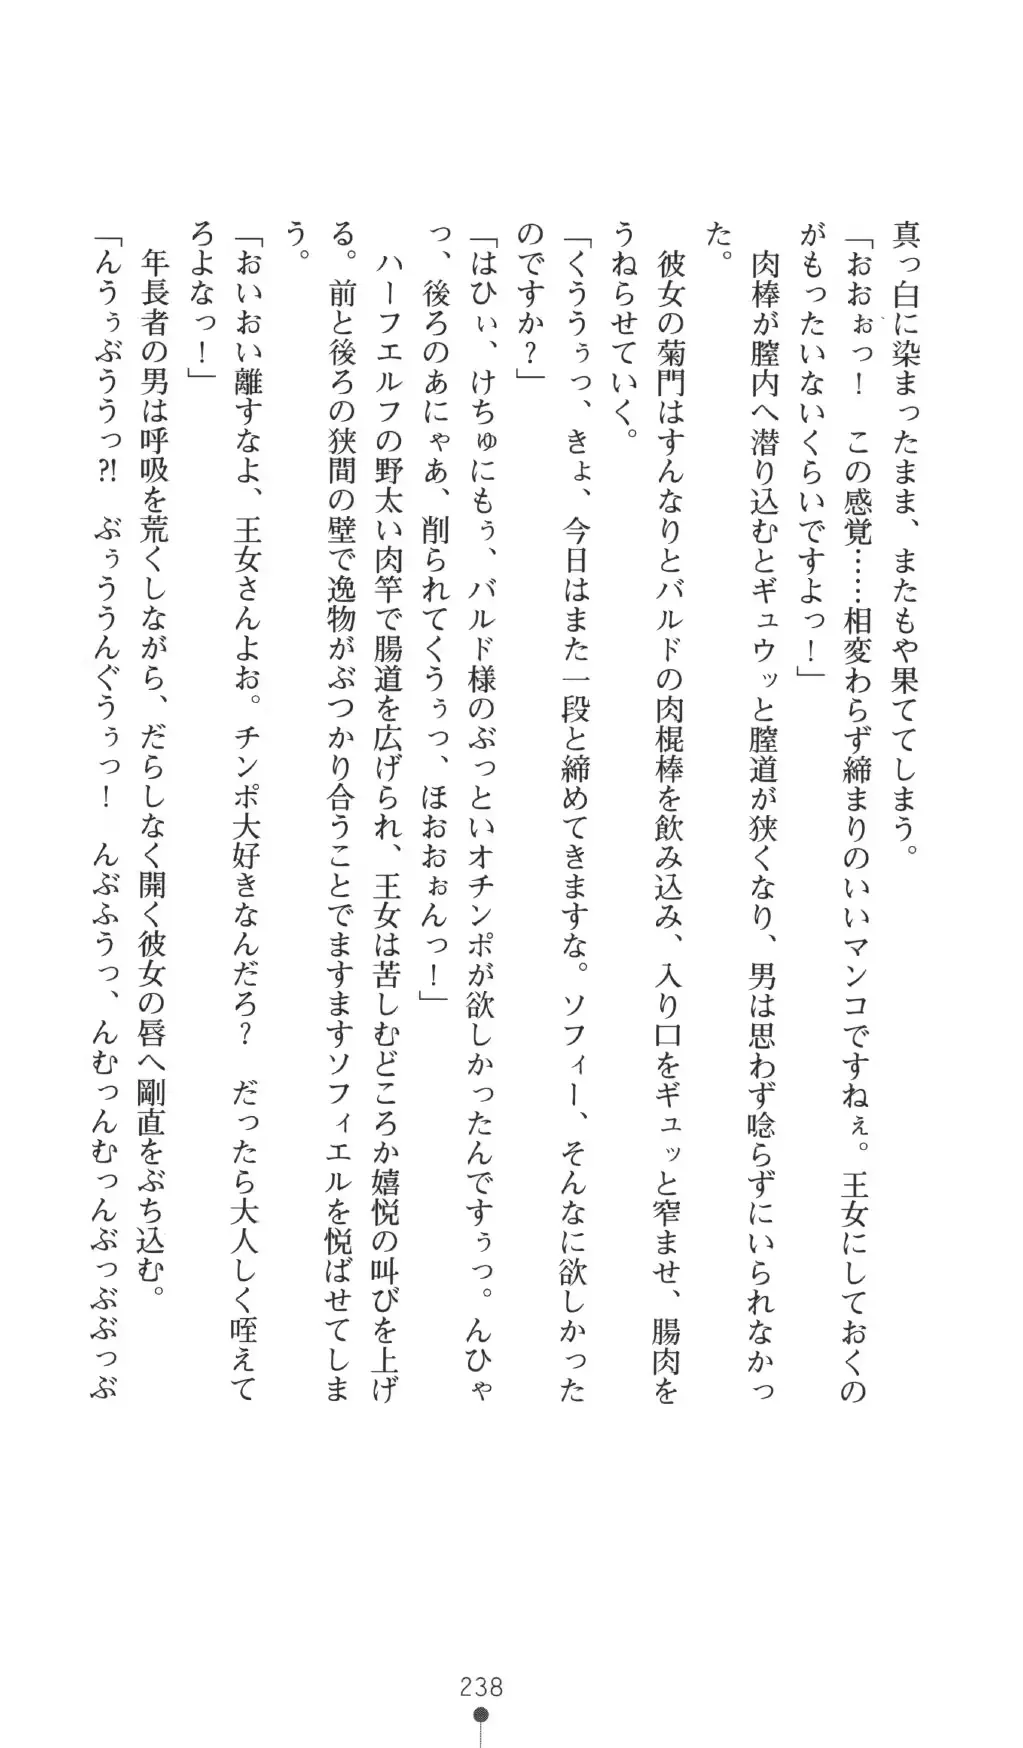 真っ白に染まったまま、またもや果ててしまう。
「おおぉっ！　この感覚……相変わらず締まりのいいマンコですねぇ。王女にしておくの
がもったいないくらいですよっ！」
　肉棒が膣内へ潜り込むとギュウッと膣道が狭くなり、男は思わず唸らずにいられなかっ
た。
　彼女の菊門はすんなりとバルドの肉棍棒を飲み込み、入り口をギュッと窄ませ、腸肉を
うねらせていく。
「くううぅっ、きょ、今日はまた一段と締めてきますな。ソフィー、そんなに欲しかった
のですか？」
「はひぃ、けちゅにもぅ、バルド様のぶっといオチンポが欲しかったんですぅっ。んひゃ
っ、後ろのあにゃあ、削られてくうぅっ、ほおおぉんっ！」
　ハーフエルフの野太い肉竿で腸道を広げられ、王女は苦しむどころか嬉悦の叫びを上げ
る。前と後ろの狭間の壁で逸物がぶつかり合うことでますますソフィエルを悦ばせてしま
う。
「おいおい離すなよ、王女さんよお。チンポ大好きなんだろ？　だったら大人しく咥えて
ろよなっ！」
　年長者の男は呼吸を荒くしながら、だらしなく開く彼女の唇へ剛直をぶち込む。
「んうぅぶううっ?!　ぶぅううんぐうぅっ！　んぶふうっ、んむっんむっんぶっぶぶっぶ
238